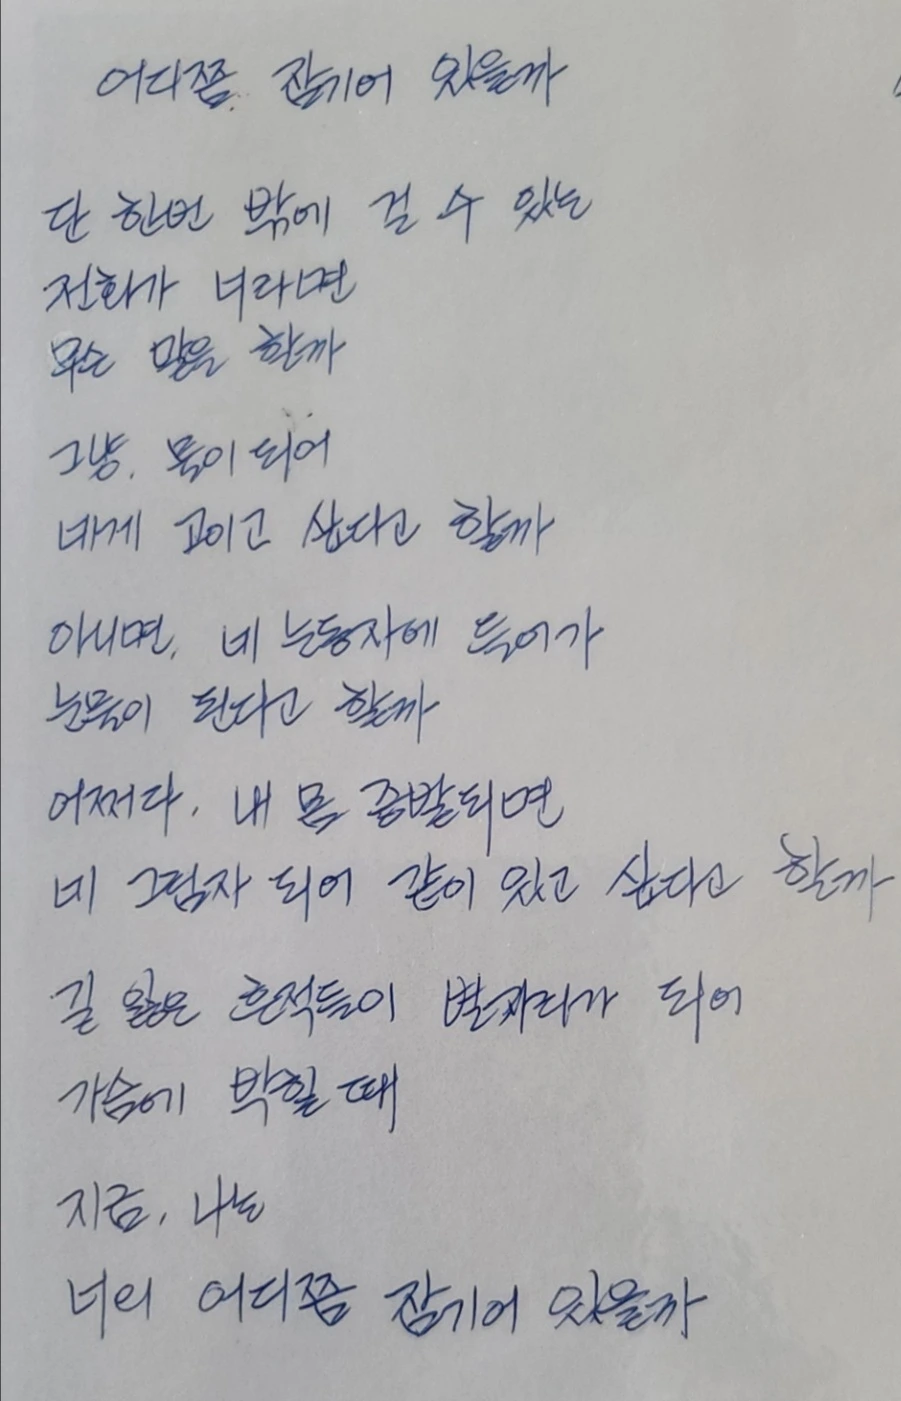 어디쯤 잠기어 있을까
단 한번 밖에 걸 수 있는
전화가 너라면
무슨 말을 할까
그냥, 물이 되어
네게 고이고 싶다고 할까
아니면, 네 눈동자에 들어가
눈물이 된다고 할까
어쩌다, 내 몸 증발되면
네 그림자 되어 같이 있고 싶다고 할까
길 잃은 흔적들이 별자리가 되어
가슴에 박힐 때
지금, 나는
너의 어디쯤 잠기어 있을까